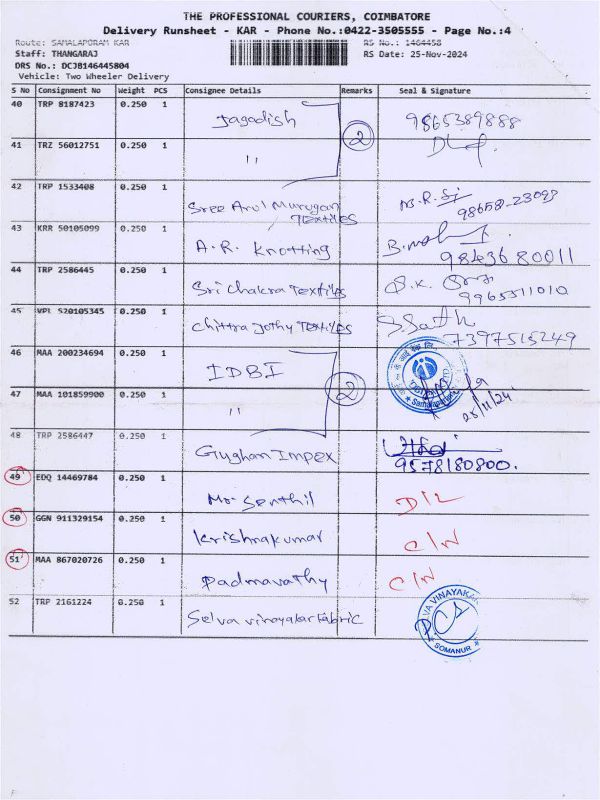 THE PROFESSIONAL COURIERS, COIMBATORE
Delivery Runsheet - KAR - Phone No.:0422-3505555 - Page No.:4
Route: SAMALAPORAM KAR RS No.: 1464458
Staff: THANGARAJ RS Date: 25-Nov-2024
DRS No.: DCJB146445804
Vehicle: Two Wheeler Delivery
S No Consignment No Weight PCS Consignee Details Remarks Seal & Signature
40 TRP 8187423 0.250 1 Jagadish 2 9865389888
41 TRZ 56012751 0.250 1 "
42 TRP 1533408 0.250 1 Sree Arul Murugan Textiles 98658-23093
43 KRR 50105099 0.250 1 A.R. Knotting 9843680011
44 TRP 2586445 0.250 1 Sri Chakra Textiles 9965311010
45 VPL 520105345 0.250 1 Chittra Jothy Textiles 7397515249
46 MAA 200234694 0.250 1 IDBI 2
47 MAA 101859900 0.250 1 " 25/11/24
48 TRP 2586447 0.250 1 Gughan Impex 9578180800.
49 EDQ 14469784 0.250 1 Mr. Senthil D/L
50 GGN 911329154 0.250 1 Krishnakumar C/N
51 MAA 867020726 0.250 1 Padmavathy C/N
52 TRP 2161224 0.250 1 Selva vinayakar Fabric
SOMANUR